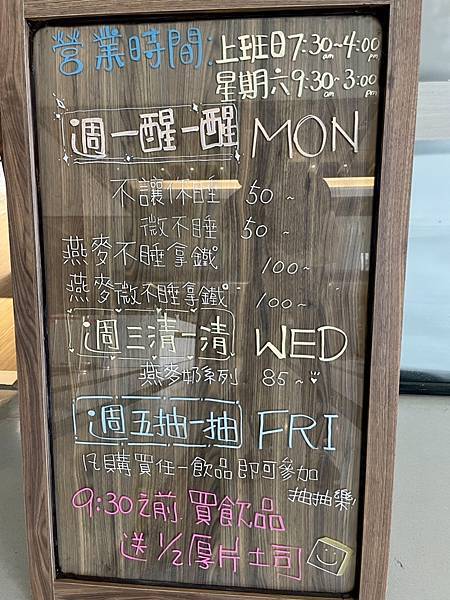 營業時間:上班日7:30~4:00
am pm
星期六9:30~3:00
am pm
週一醒一醒 MON
不讓你睡 50~
微不睡 50~
燕麥不睡拿鐵 100~
燕麥微不睡拿鐵 100~
週三清一清 WED
燕麥奶系列 85~
週五抽一抽 FRI
凡購買任一飲品即可參加
抽抽樂!
9:30之前,買飲品
送1/2厚片土司